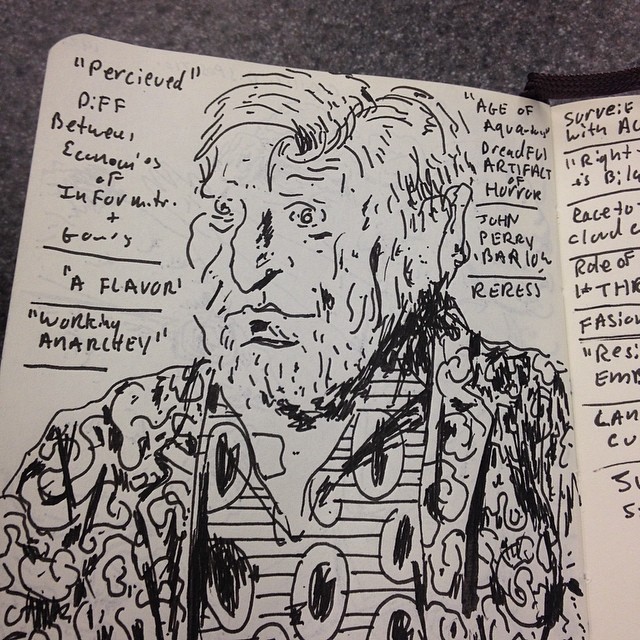 "Percieved"
Diff
Between
Economies
of
Informtn.
+
Goods
"A FLAVOR'
"Working
ANARCHEY"
"AGE OF
Aquarius"
Dreadful
ARTIFACT
of
Horror
JOHN
PERRY
BARLOW
RERESS
Surveil
with Ac
"Right
is Bila
Race to
cloud c
Role of
1st THR
FASion
"Resi
EMB
LAW
CU
SU
S